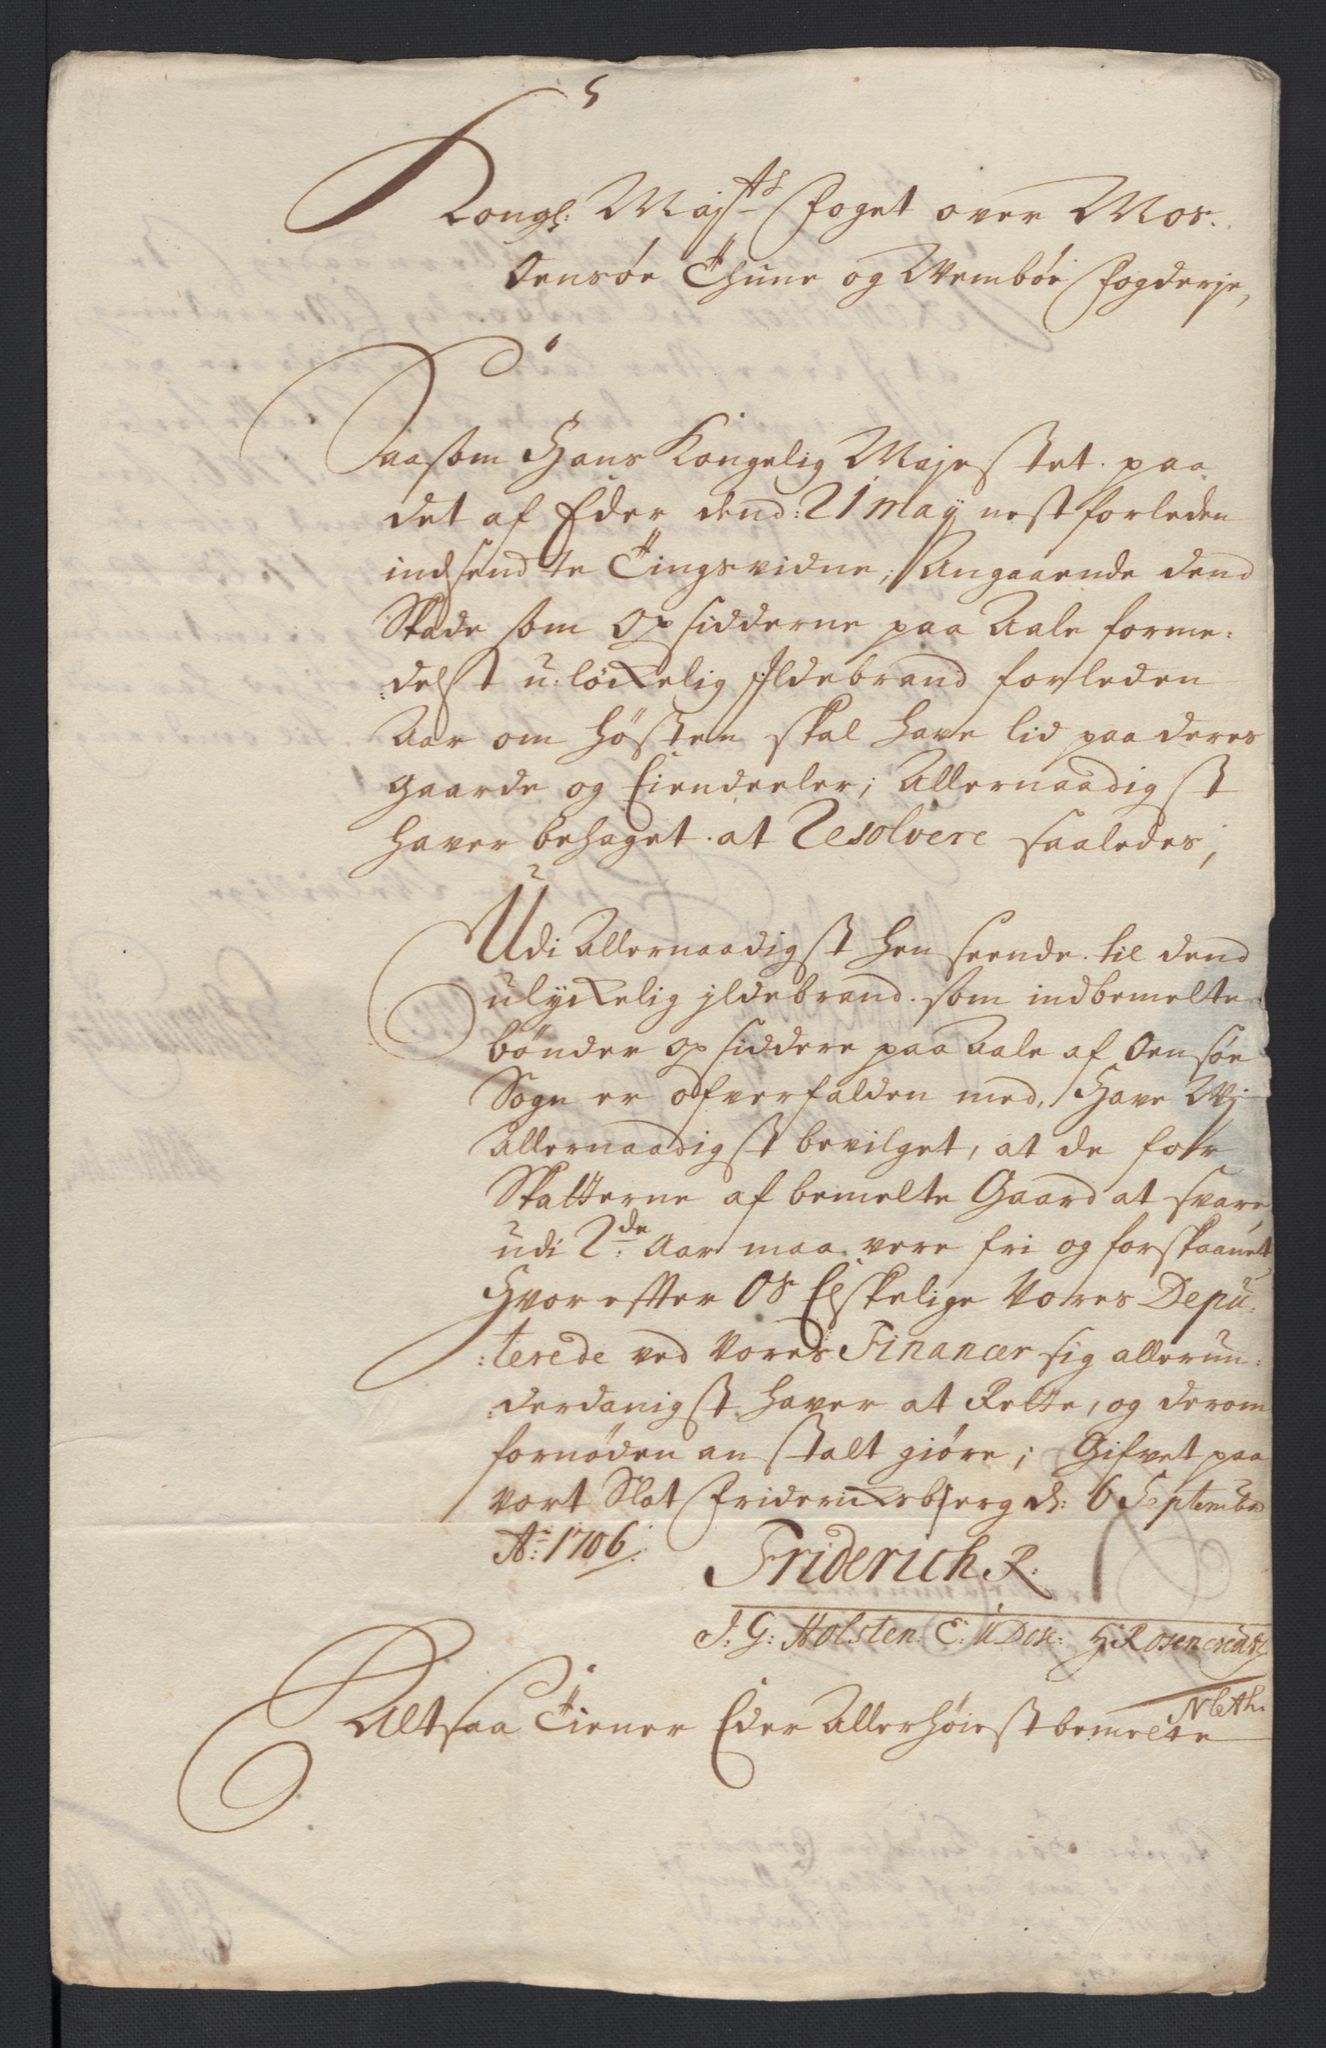 Kongl: Maj^ts foget over Mos.
Oensøe Thune og Wembøe fogderje,
Saasom Hans Kongelig Majestet. paa
det af Eder dend: 21 may nestforleden
indsendte Tingsvidne, Angaaende dend
Skade som Opsidderne paa Aale forme:
:delst u:løckelig Ildebrand forleden
Aar om høsten skal have lid paa deres
gaarde og Eiendeeler; Allernaadigst
haver behaget at Resolvere saaledes;
Udi Allernaadigst henseende til dend
ulyckelig jldebrand som indbemelte
bønder opsiddere paa Aale af Oensøe
Sogn er ofverfalden med, Have Wj
Allernaadigst bevilget, at de for
Skatterne af bemelte Gaard at svare
udi 2de: Aar maa vere fri og forskaanet
Hvorefter Os Elskelige Vores Depu:
:terede ved Vores Financer sig allerun:
:derdanigst haver at Rette, og derom
fornøden anstalt giøre; Gifvet paa
vort Slot Fridericksbjerg d: 6 Septembr
A: 1706:
Friderich R:
J: G: Holsten. C: H Rosencrantz
Altsaa Tiener Eder Allerhøiestbemelte